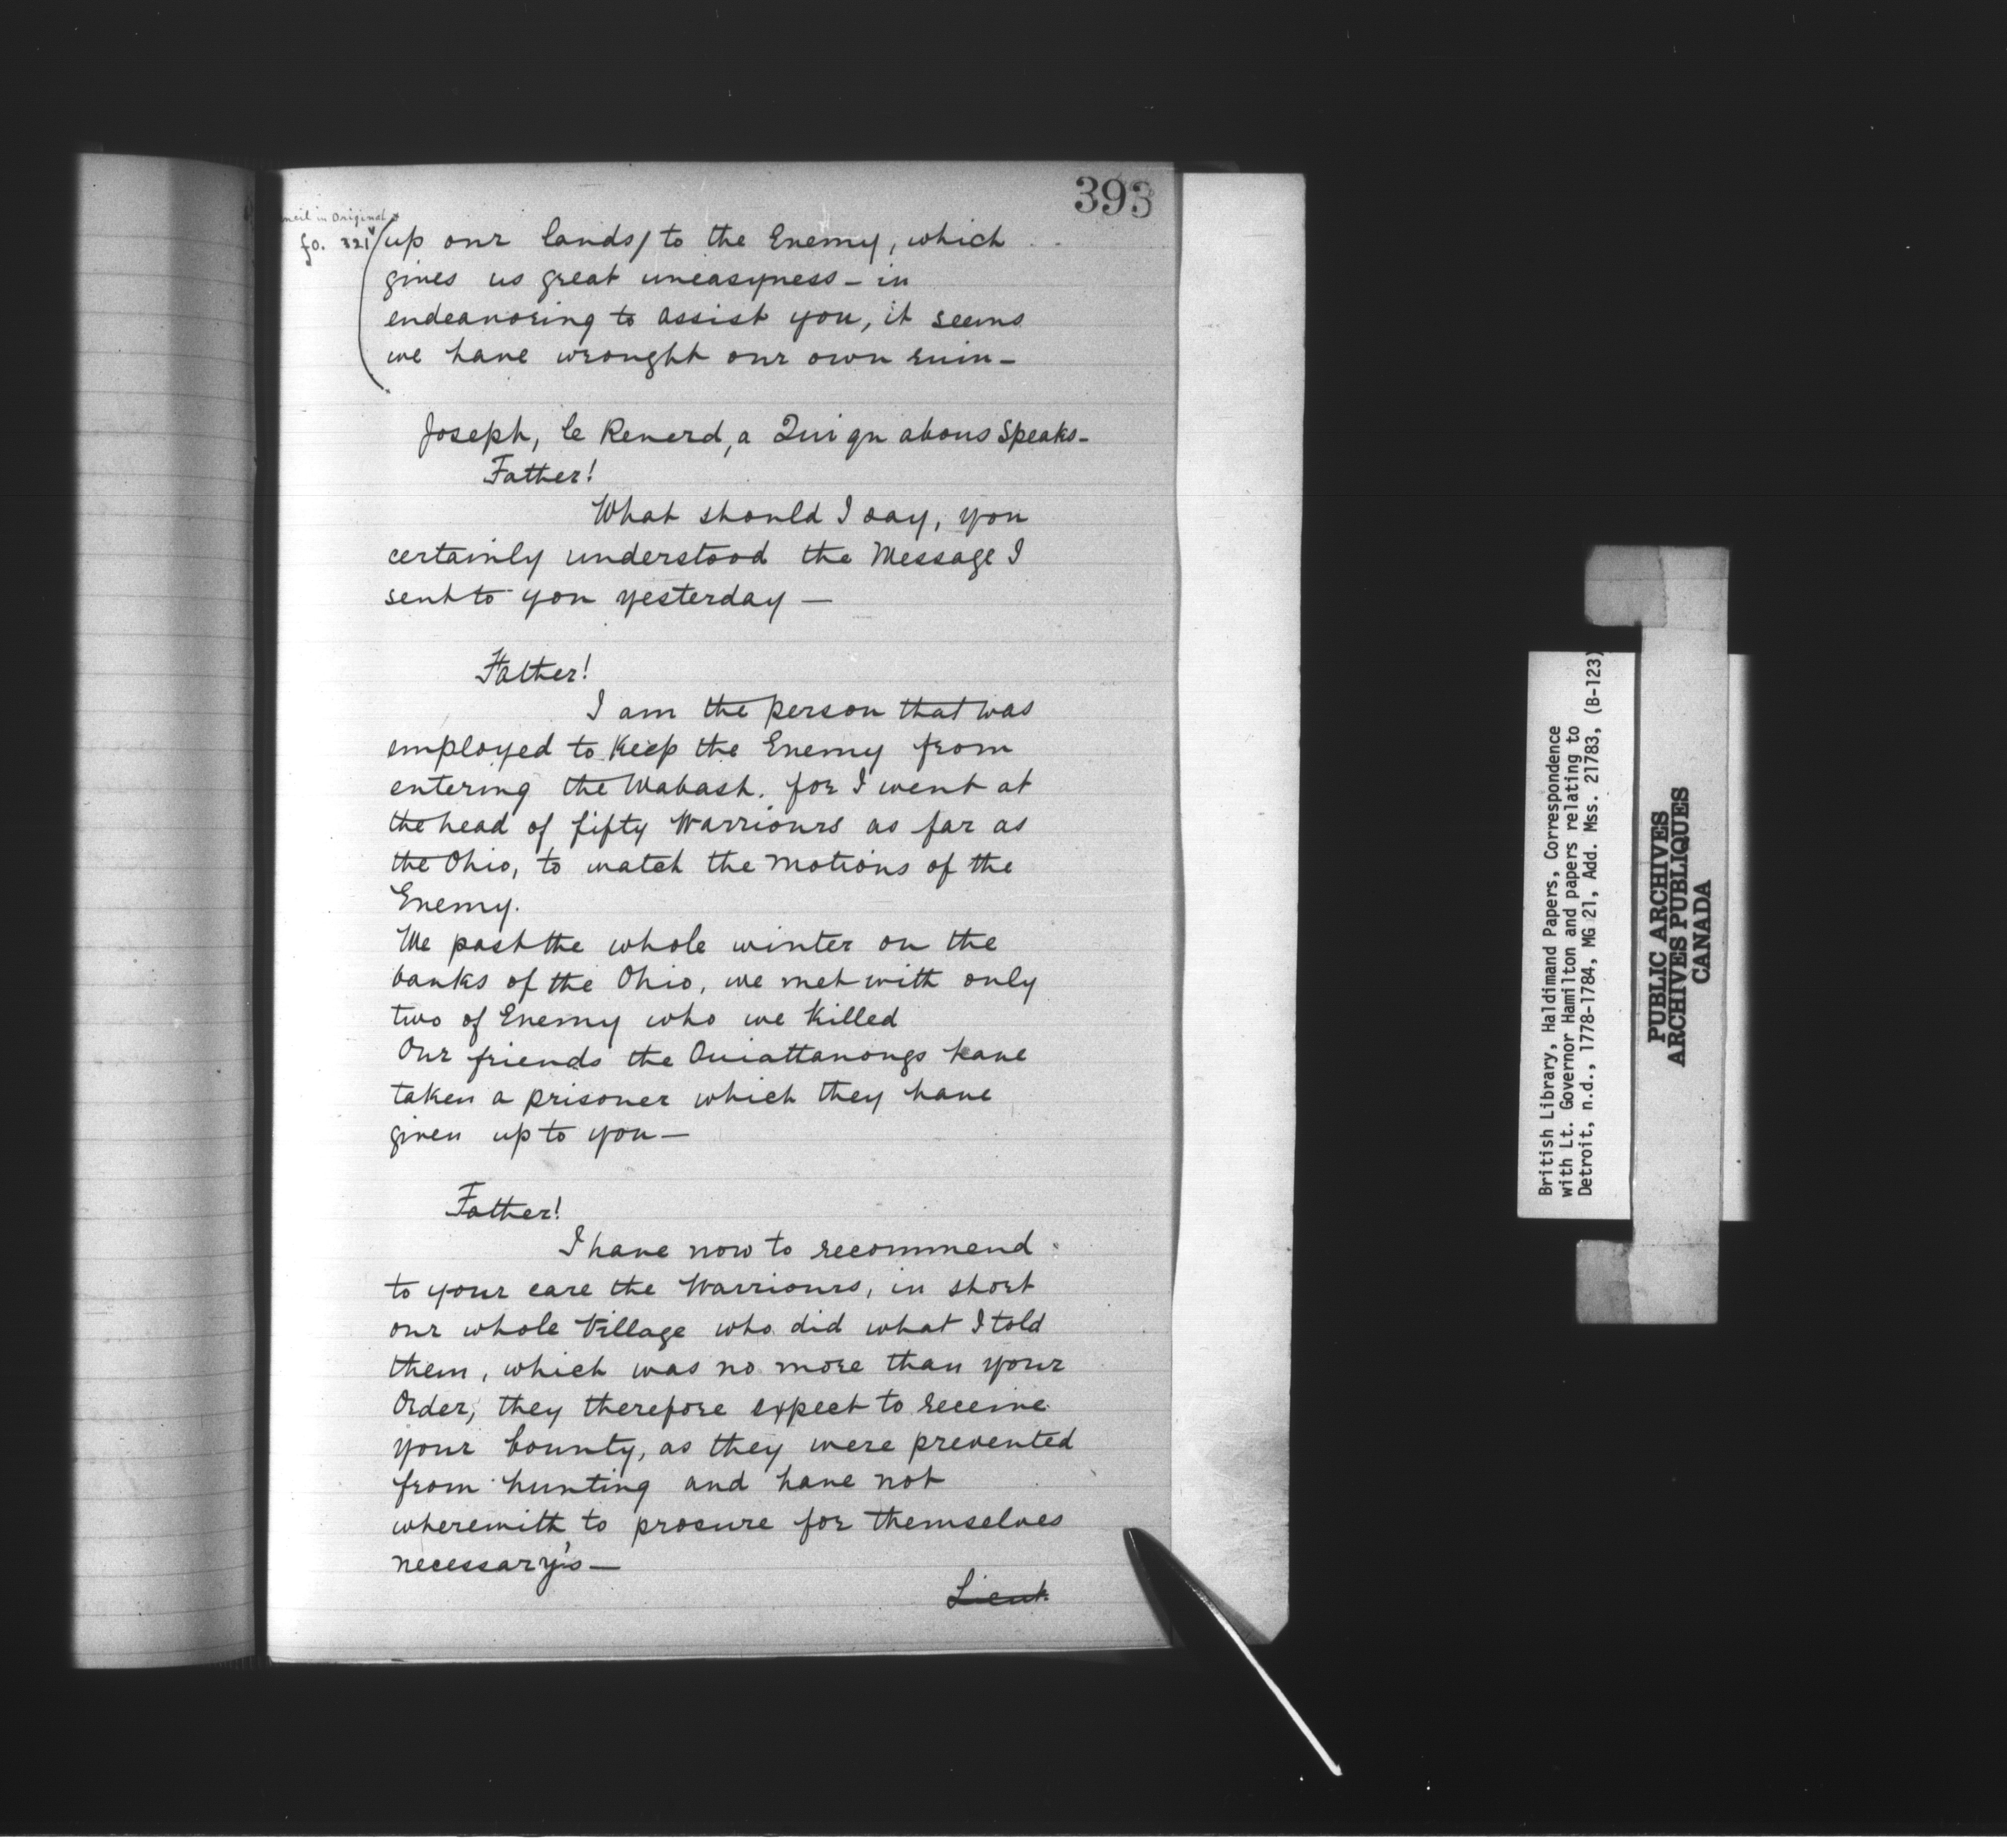 393
in Original
fo. 321v
up our lands/ to the Enemy, which
gives us great uneasyness - in
endeavoring to assist you, it seems
we have wrought our own ruin -
Joseph, le Renerd, a Quiqu abous Speaks -
Father!
What should I say, you
certainly understood the Message I
sent to you yesterday —
Father!
I am the person that was
employed to Keep the Enemy from
entering the Wabash. for I went at
the head of fifty Warriours as far as
the Ohio, to watch the Motions of the
Enemy.
We past the whole winter on the
banks of the Ohio, we met with only
two of Enemy who we Killed
Our friends the Ouiattanongs have
taken a prisoner which they have
given up to you —
Father!
I have now to recommend
to your care the Warriours, in short
our whole Village who did what I told
them, which was no more than your
Order, they therefore expect to receive
your bounty, as they were prevented
from hunting and have not
wherewith to procure for themselves
necessary's —
Lieut.
British Library, Haldimand Papers, Correspondence
with Lt. Governor Hamilton and papers relating to
Detroit, n.d., 1778-1784, MG 21, Add. Mss. 21783, (B-123)
PUBLIC ARCHIVES
ARCHIVES PUBLIQUES
CANADA